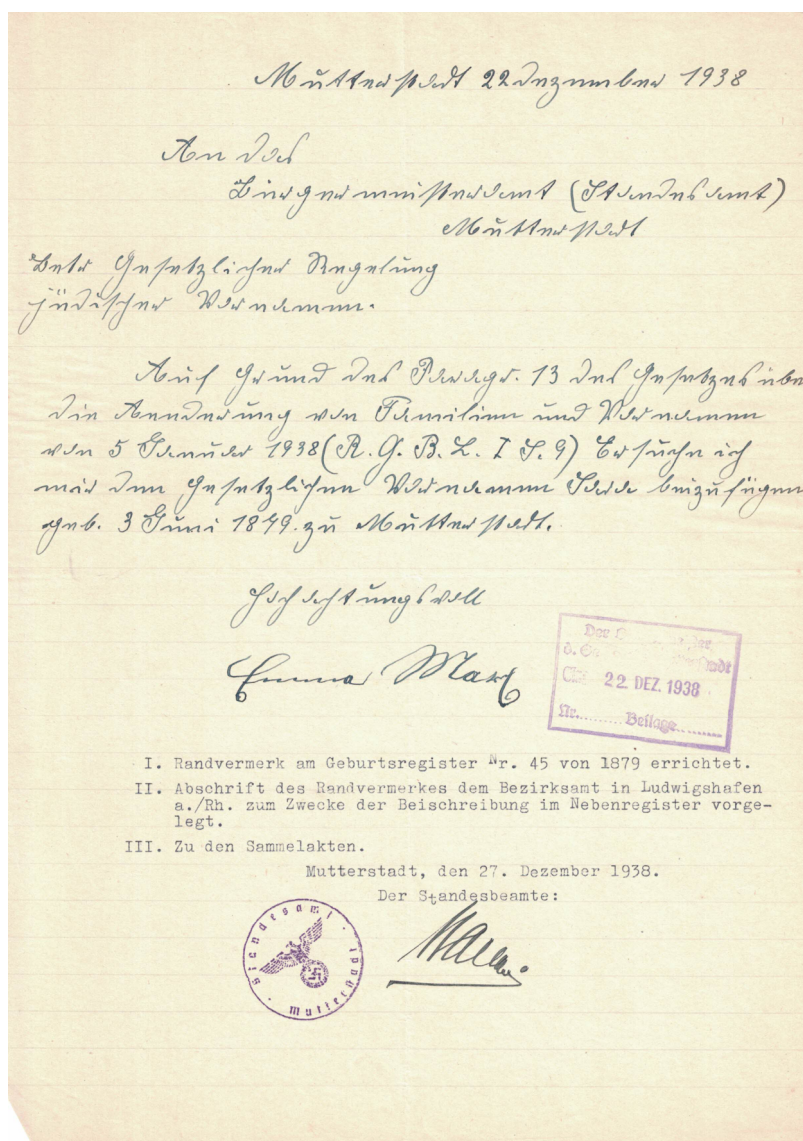 Mutterstadt 22 Dezember 1938
An das
Bürgermeisteramt (Standesamt)
Mutterstadt
Betr Gesetzlicher Regelung
jüdischer Vornamen.
Auf Grund des Paragr. 13 des Gesetzes übe
die Aenderung von Familien und Vornamen
von 5 Januar 1938 (R. G. B. L. I S. 9) Ersuche ich
mir den Gesetzlichen Vornamen Sara beizufügen
geb. 3 Juni 1879. zu Mutterstadt.
Hochachtungsvoll
Emma Marx
Der
d.
22. DEZ. 1938
Nr. ........ Beilage ........
I. Randvermerk am Geburtsregister Nr. 45 von 1879 errichtet.
II. Abschrift des Randvermerkes dem Bezirksamt in Ludwigshafen
a./Rh. zum Zwecke der Beischreibung im Nebenregister vorge-
legt.
III. Zu den Sammelakten.
Mutterstadt, den 27. Dezember 1938.
Der Standesbeamte:
Standesamt · Mutterstadt ·